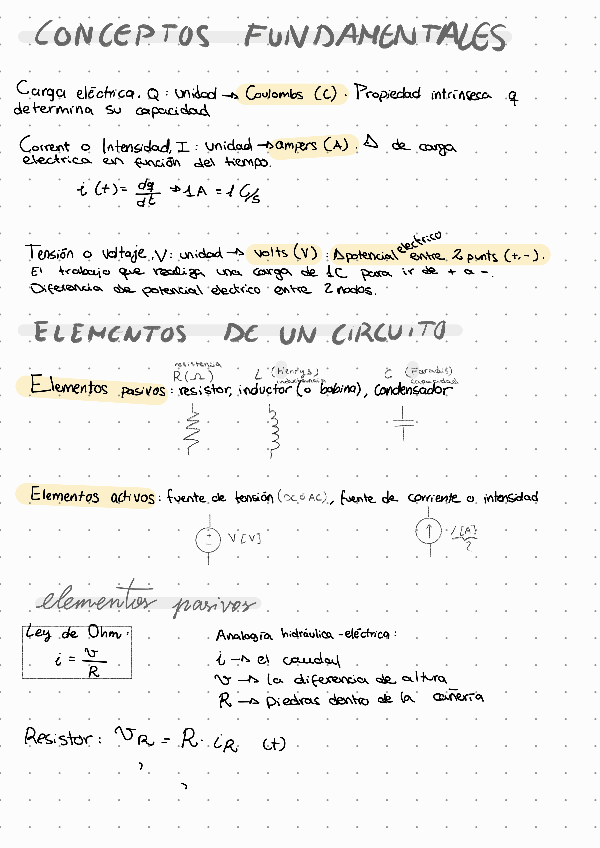 CONCEPTOS FUNDAMENTALES
Carga eléctrica. Q: unidad → Coulombs (C). Propiedad intrínseca q
determina su capacidad
Corrent o Intensidad, I: unidad → ampers (A). Δ de carga
electrica en función del tiempo.
i (t) = dq/dt → 1A = 1 C/s
Tensión o voltaje, V: unidad → volts (V): Δpotencial electrico entre 2 punts (+,-).
El trabajo que realiza una carga de 1C para ir de + a -.
Diferencia de potencial electrico entre 2 nodos.
ELEMENTOS DE UN CIRCUITO
resistencia
R (Ω) L (henrys) C (Faradis)
Elementos pasivos: resistor, inductor (o bobina), condensador
Elementos activos: fuente de tensión (DC o AC), fuente de corriente o intensidad
V [V] i [A]
elementos pasivos
Ley de Ohm.
i = v/R
Analogía hidráulica-eléctrica:
i → el caudal
v → la diferencia de altura
R → piedras dentro de la cañería
Resistor: VR = R · iR (t)